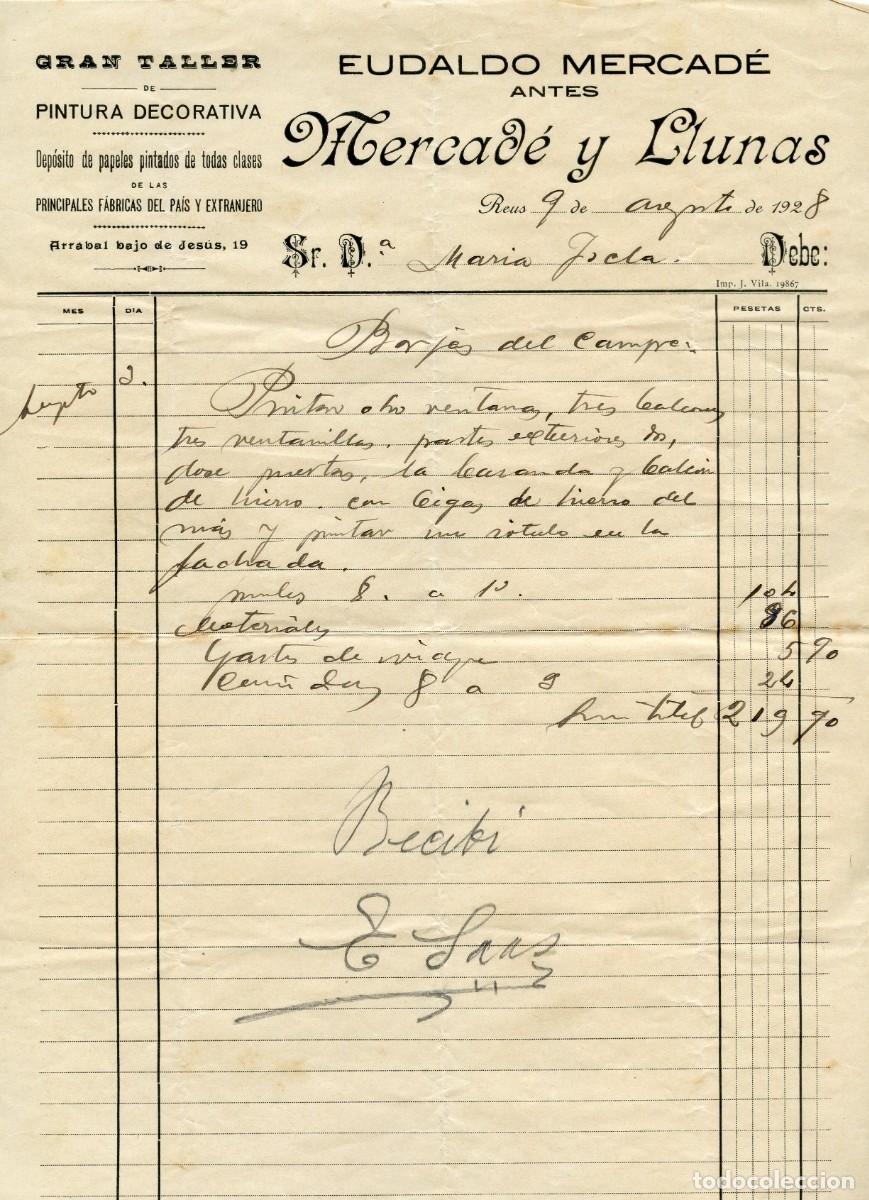 GRAN TALLER
DE
PINTURA DECORATIVA
Depósito de papeles pintados de todas clases
DE LAS
PRINCIPALES FÁBRICAS DEL PAÍS Y EXTRANJERO
Arrabal bajo de Jesús, 19
EUDALDO MERCADÉ
ANTES
Mercadé y Llunas
Reus 9 de agosto de 1928
Sr. D.ª Maria Debe:
Imp. J. Vila. 19867
MES DIA PESETAS CTS.
Borjas del Campo.
Pintar oho ventanas, tres balcones
tres ventanillas, partes exteriores dos,
dose puertas, la baranda y balcon
de hierro. con bigas de hierro del
más y pintar un rotulo en la
fachada.
8. a 13. 104
Materiales 86
Gastos de viage 5 90
8 a 3 24
219 90
Recibi
E
todocoleccion